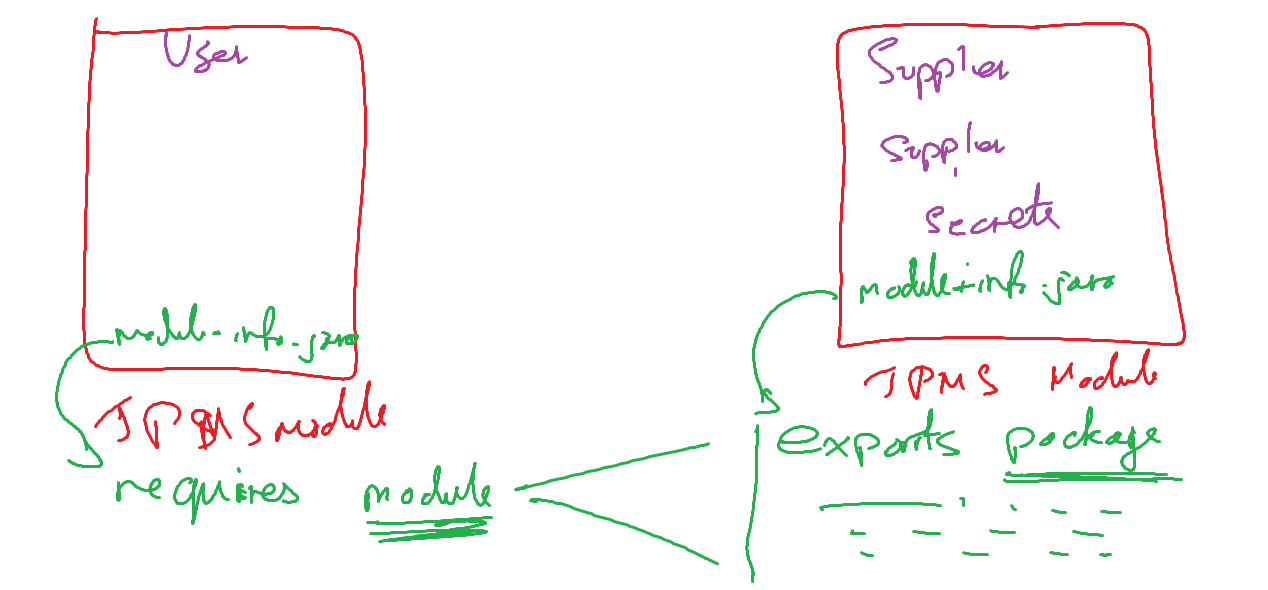 User
module-info.java
JPMS module
requires module
Supplier
Supplier
Secrets
module-info.java
JPMS Module
exports package